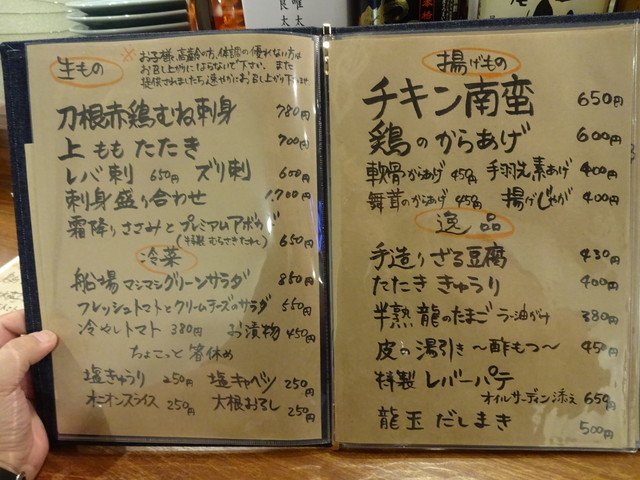 生もの
※お子様、高齢の方、体調の優れない方は
お召し上がりにならないで下さい。また
提供されましたら速やかにお召し上がり下さいませ
刀根赤鶏むね刺身 780円
上ももたたき 700円
レバ刺 650円 ズリ刺 600円
刺身盛り合わせ 1,700円
霜降りささみとプレミアムアボカド
(特製むらさきたれ) 650円
冷菜
船場マシマシグリーンサラダ 850円
フレッシュトマトとクリームチーズのサラダ 550円
冷やしトマト 380円 お漬物 450円
ちょこっと箸休め
塩きゅうり 250円 塩キャベツ 250円
オニオンスライス 250円 大根おろし 250円
揚げもの
チキン南蛮 650円
鶏のからあげ 600円
軟骨からあげ 450円 手羽先素あげ 400円
舞茸のからあげ 450円 揚げじゃが 400円
逸品
手造りざる豆腐 430円
たたききゅうり 400円
半熟龍のたまご ラー油がけ 380円
皮の湯引き〜酢もつ〜 450円
特製レバーパテ
オイルサーディン添え 650円
龍玉だしまき 500円